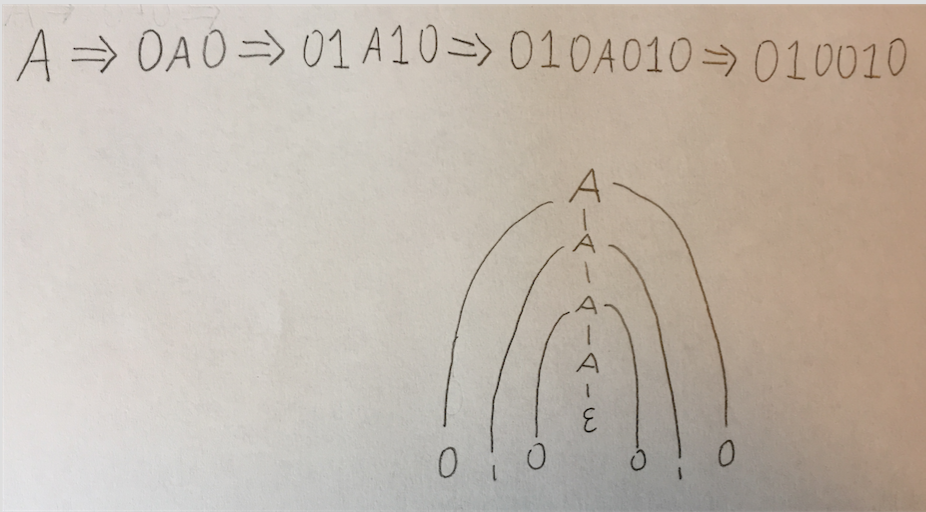 A ⇒ 0A0 ⇒ 01A10 ⇒ 010A010 ⇒ 010010
A
A
A
A
ε
0 1 0 0 1 0